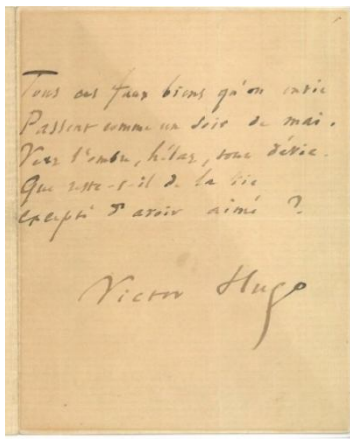 Tous ces faux biens qu'on envie
Passent comme un soir de mai.
Vers l'ombre, hélas, tout dévie.
Que reste-t-il de la vie
excepté d'avoir aimé ?
Victor Hugo